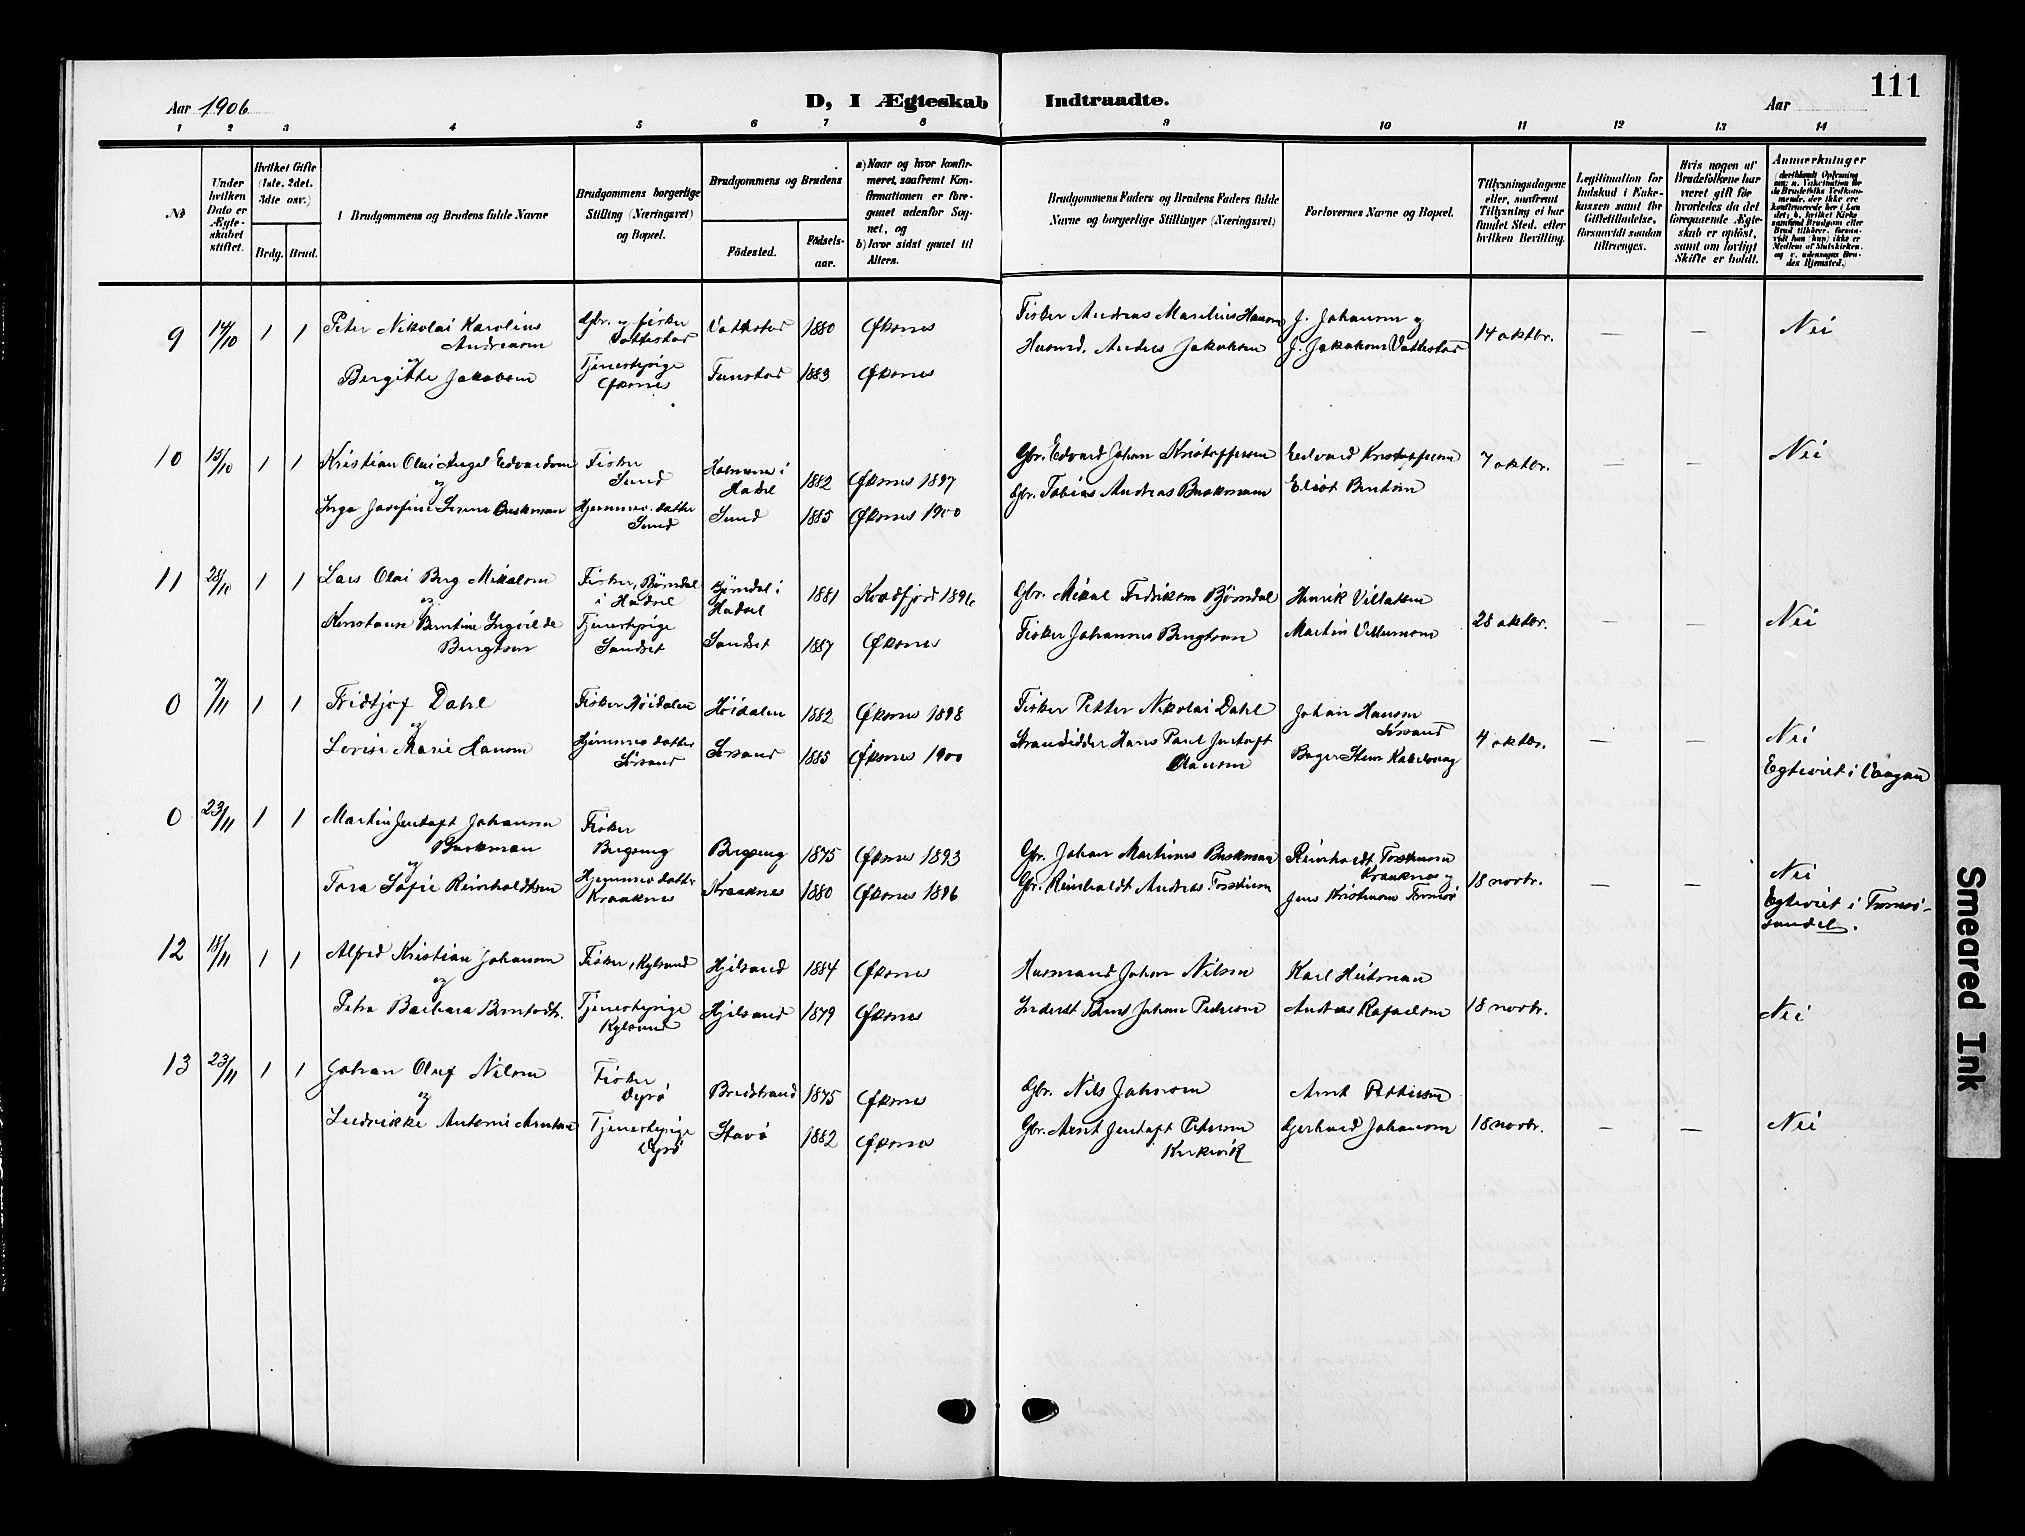 111
Aar 1906
D, I Ægteskab Indtraadte.
Aar
1 2 3 4 5 6 7 8 9 10 11 12 13 14
No
Under hvilken Dato er Ægteskabet stiftet.
Hvilket Gifte (1ste, 2det. 3die osv.)
Brdg. Brud.
Brudgommens og Brudens fulde Navne
Brudgommens borgerlige Stilling (Næringsvei) og Bopæl.
Brudgommens og Brudens
Fødested.
Fødselsaar.
a) Naar og hvor konfirmeret, saafremt Konfirmationen er foregaaet udenfor Sognet, og
b) hvor sidst gaaet til Alters.
Brudgommens Faders og Brudens Faders fulde Navne og borgerlige Stillinger (Næringsvei)
Forlovernes Navne og Bopæl.
Tillysningsdagene eller, saafremt Tillysning ei har fundet Sted, efter hvilken Bevilling.
Legitimation for Indskud i Enkekassen samt for Giftetilladelse, forsaavidt saadan tiltrænges.
Hvis nogen af Brudefolkene har været gift før hvorledes da det foregaaende Ægteskab er opløst, samt om lovligt Skifte er holdt.
Anmerkninger
9 14/10 1 1 Peter Nikolai Karolius Andreasen Gbr. og fisker Vottestad Vottestad 1880 Øksnes Fisker Andreas Marelius Hansen J. Johansen og
og
Bergitte Jakobsen Tjenestepige Øksnes Tunstad 1883 Øksnes Husmd. Anders Jakobsen J. Jakobsen Vottestad 14 oktbr. — — Nei
10 15/10 1 1 Kristian Olai Angel Edvardsen Fisker Sund i Hadsel 1882 Øksnes 1897 Gbr. Edvard Johan Kristoffersen Edvard Kristoffersen 7 oktbr. — — Nei
og
Inga Josefine Buckman Hjemmev. datter Sund Sund 1885 Øksnes 1900 Gbr. Tobias Andreas Buckmann
11 28/10 1 1 Lars Olai Berg Mikalsen Fisker, Børndal i Hadsel Børndal i Hadsel 1881 Kvædfjord 1896 Gbr. Mikal Fredriksen Børndal Henrik
og
Bentine Ingvilde Bengtsen Tjenestepige Sandset Sandset 1887 Øksnes Fisker Johannes Bengtsen Martin 28 oktbr. — — Nei
0 7/11 1 1 Fridtjof Dahl Fisker Høidalen Høidalen 1882 Øksnes 1898 Fisker Petter Nikolai Dahl Johan Hansen Sørsand
og
Marie Hansen Hjemmev. datter Sørsand Sørsand 1885 Øksnes 1900 Strandsidder Hans Paul Jentoft Hansen Bager Kabelvaag 4 oktbr. — — Nei
Egteviet i Vaagan
0 23/11 1 1 Martin Jentoft Johansen Buckman Fisker Bergseng Bergseng 1875 Øksnes 1893 Gbr. Johan Martinus Buckman Reinholdt Torstensen Kraaknes og
og
Tora Sofie Reinholdtsen Hjemmev. datter Kraaknes Kraaknes 1880 Øksnes 1896 Gbr. Reinholdt Andreas Torstensen Jens Kristensen Tromsø 18 novbr. — — Nei
Egteviet i Tromsøsundet.
12 18/11 1 1 Alfred Kristian Johansen Fisker, Kylsand Hjelsand 1884 Øksnes Husmand Johan Nilsen Karl Heitman
og
Petra Barbara Berntsdt. Tjenestepige Kylsand Hjelsand 1879 Øksnes Inderst Bernt Johan Pedersen Andreas Rafaelsen 18 novbr. Nei
13 23/11 1 1 Johan Oluf Nilsen Fisker Dyrø Breidstrand 1875 Øksnes Gbr. Nils Johnsen Arnt Pettersen
og
Antonie Arntsen Tjenestepige Dyrø Skovø 1882 Øksnes Gbr. Arnt Jentoft Petersen Kirkevik Gerhard Johansen 18 novbr. — — Nei
Smeared Ink